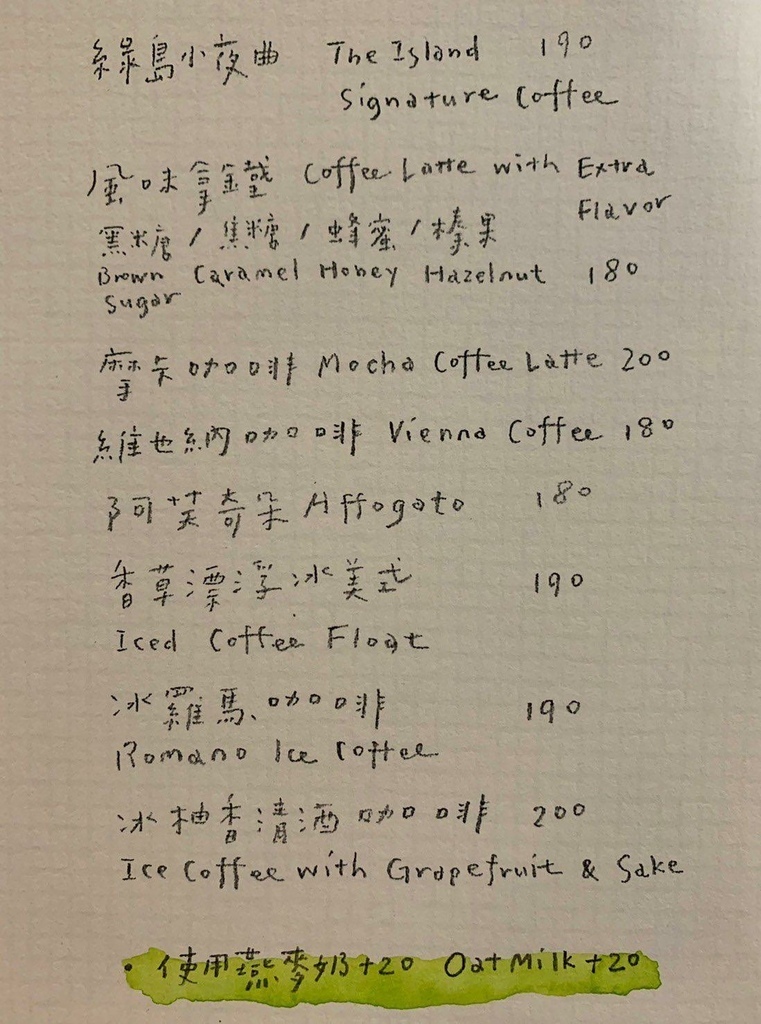 綠島小夜曲 The Island 190
Signature Coffee
風味拿鐵 Coffee Latte with Extra
Flavor
黑糖/焦糖/蜂蜜/榛果
Brown Caramel Honey Hazelnut 180
Sugar
摩卡咖啡 Mocha Coffee Latte 200
維也納咖啡 Vienna Coffee 180
阿芙奇朵 Affogato 180
香草漂浮冰美式 190
Iced Coffee Float
冰羅馬咖啡 190
Romano Ice Coffee
冰柚香清酒咖啡 200
Ice Coffee with Grapefruit & Sake
• 使用燕麥奶+20 Oat Milk +20